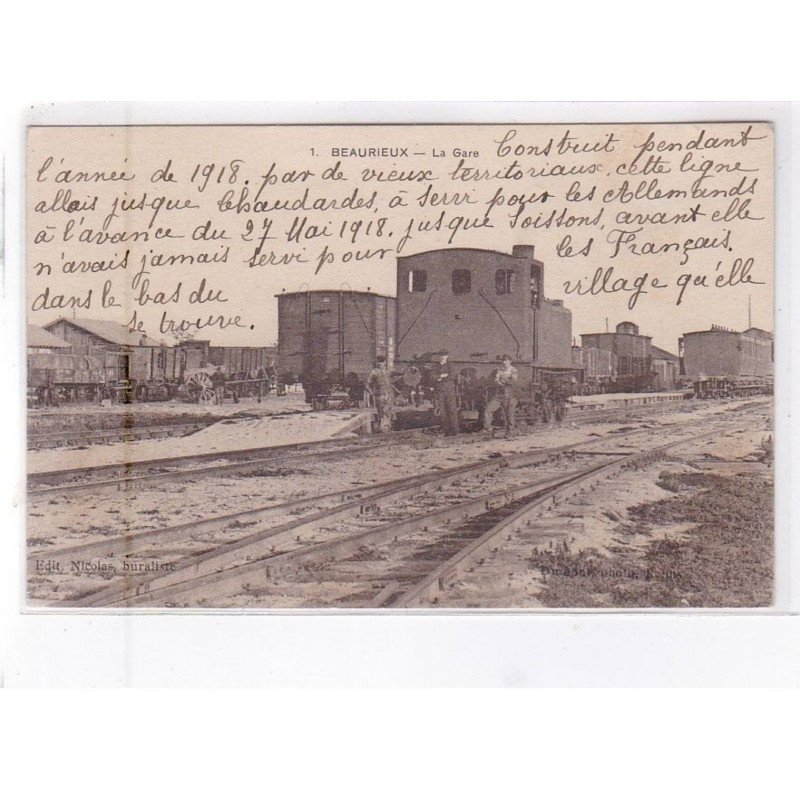 1. BEAURIEUX — La Gare Construit pendant
l'année de 1918. par de vieux territoriaux, cette ligne
allais jusque Chaudardes, à servi pour les Allemands
à l'avance du 27 Mai 1918. jusque Soissons, avant elle
n'avais jamais servi pour les Français.
dans le bas du village qu'elle
se trouve.
Edit. Nicolas, buraliste
photo,